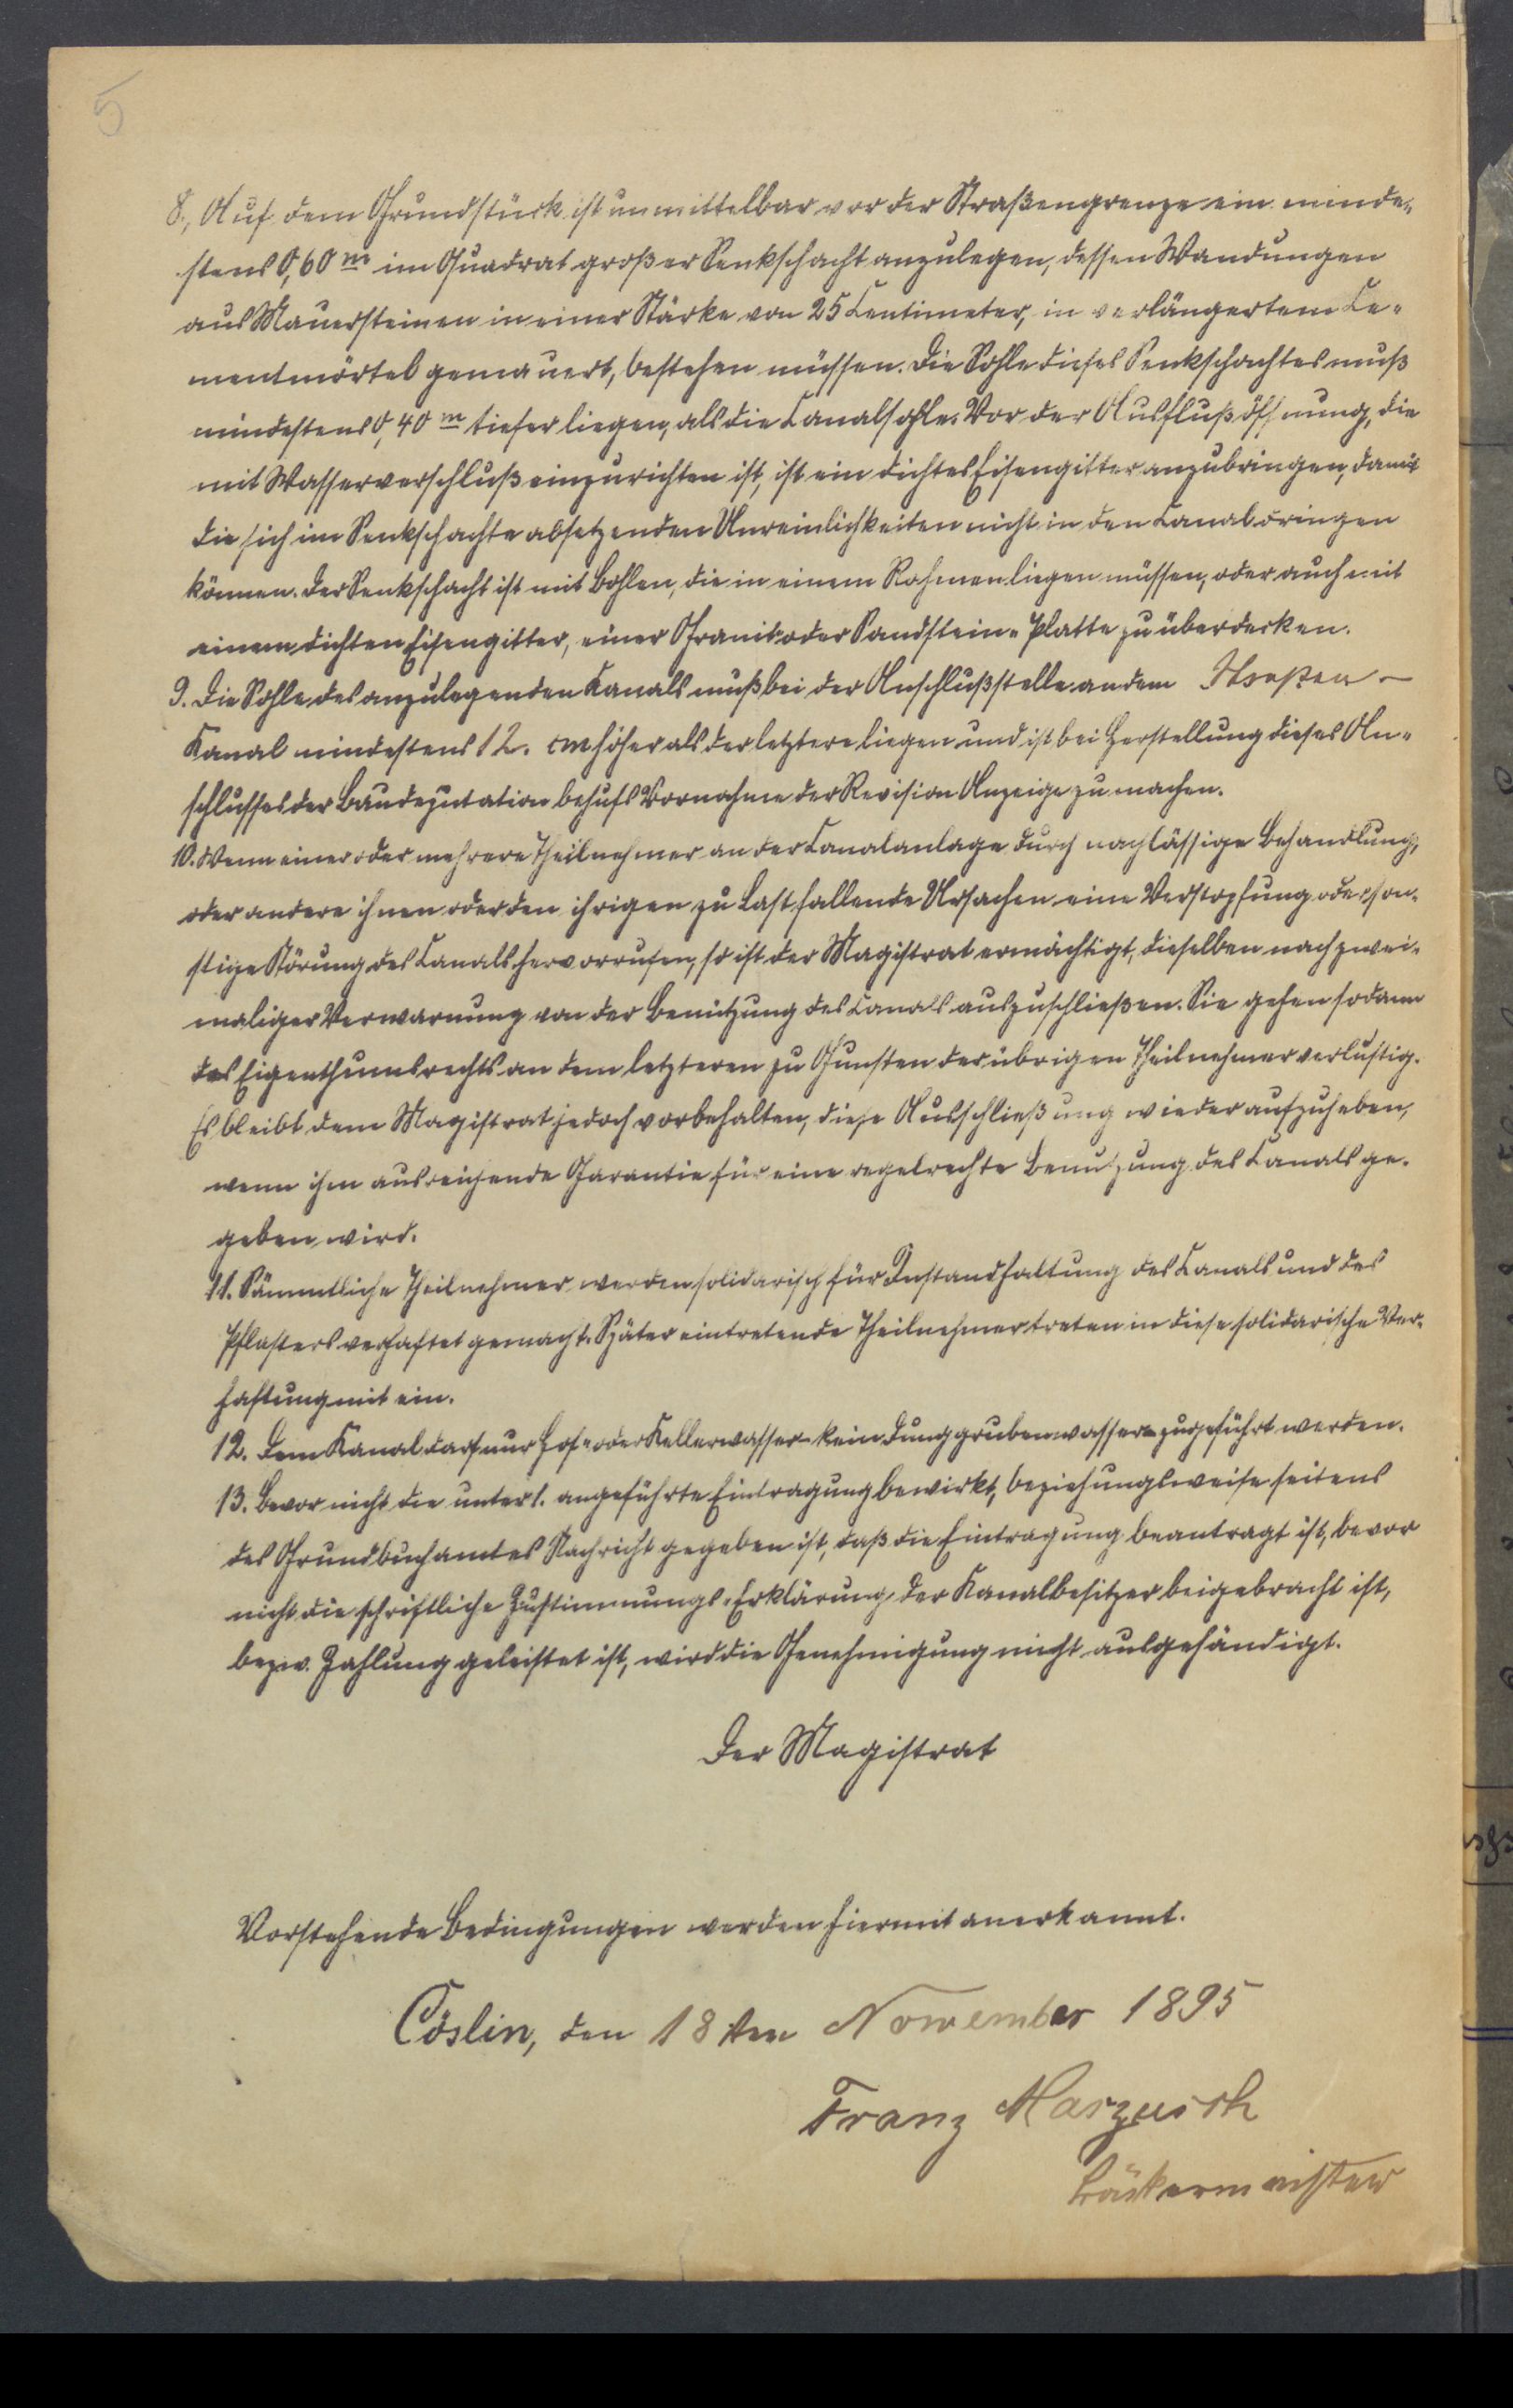 5
8., Auf dem Grundstück ist unmittelbar vor der Straßengrenze ein minde-
stens 0,60 m im Quadrat großer Senkschacht anzulegen, dessen Wandungen
aus Mauersteinen in einer Stärke von 25 Centimeter, in verlängertem Ce-
mentmörtel gemauert, bestehen müssen. Die Sohle dieses Senkschachtes muß
mindestens 0,40 m tiefer liegen, als die Canalsohle. Vor der Ausflußöffnung, die
mit Wasserverschluß einzurichten ist, ist ein dichtes Eisengitter anzubringen, damit
die sich im Senkschachte absetzenden Unreinlichkeiten nicht in den Canal dringen
können. Der Senkschacht ist mit Bohlen, die in einem Rahmen liegen müssen, oder auch mit
einem dichten Eisengitter, einer Granit oder Sandstein-Platte zu überdecken.
9. Die Sohle des anzulegenden Kanals muß bei der Anschlußstelle an dem Straßen-
Kanal mindestens 12. cm höher als der letztere liegen und ist bei Herstellung dieses An-
schlusses der Baudeputation behufs Vornahme der Revision Anzeige zu machen.
10. Wenn einer oder mehrere Theilnehmer an der Canalanlage durch nachlässige Behandlung,
oder andere ihnen oder den ihrigen zu Last fallende Ursachen eine Verstopfung oder son-
stige Störung des Canals hervorrufen, so ist der Magistrat ermächtigt, dieselben nach zwei-
maliger Verwarnung von der Benützung des Canals auszuschließen. Sie gehen sodann
des Eigenthumsrechts an dem letzteren zu Gunsten der übrigen Theilnehmer verlustig.
Es bleibt dem Magistrat jedoch vorbehalten, diese Ausschließung wieder aufzuheben,
wenn ihm ausreichende Garantie für eine regelrechte Benutzung des Canals ge-
geben wird.
11. Sämmtliche Theilnehmer werden solidarisch für Instandhaltung des Canals und des
Pflasters verhaftet gemacht. Später eintretende Theilnehmer treten in diese solidarische Ver-
haftung mit ein.
12. Dem Kanal darf nur Hof- oder Kellerwasser - kein Dunggrubenwasser - zugeführt werden.
13. Bevor nicht die unter 1. angeführte Eintragung bewirkt, beziehungsweise seitens
des Grundbuchamtes Nachricht gegeben ist, daß die Eintragung beantragt ist, bevor
nicht die schriftliche Zustimmungs-Erklärung der Kanalbesitzer beigebracht ist,
bezw. Zahlung geleistet ist, wird die Genehmigung nicht ausgehändigt.
Der Magistrat
Vorstehende Bedingungen werden hiermit anerkannt.
Cöslin, den 18 ten November 1895
Franz Marzusch
Bäckermeister